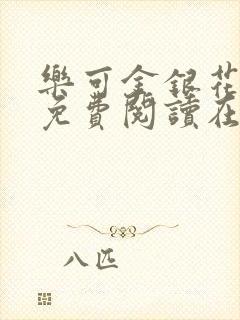 樂可金銀花
免費閱讀在
八匹